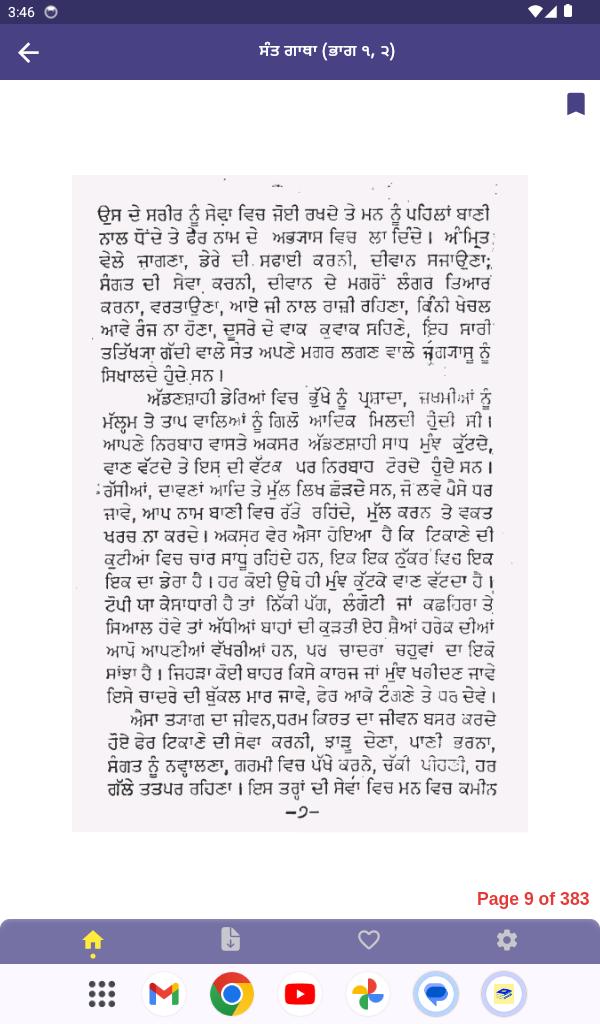 3:46
ਸੰਤ ਗਾਥਾ (ਭਾਗ ੧, ੨)
ਉਸ ਦੇ ਸਰੀਰ ਨੂੰ ਸੇਵਾ ਵਿਚ ਜੋਈ ਰਖਦੇ ਤੇ ਮਨ ਨੂੰ ਪਹਿਲਾਂ ਬਾਣੀ
ਨਾਲ ਧੋਂਦੇ ਤੇ ਫੇਰ ਨਾਮ ਦੇ ਅਭਯਾਸ ਵਿਚ ਲਾ ਦਿੰਦੇ । ਅੰਮ੍ਰਿਤ
ਵੇਲੇ ਜਾਗਣਾ, ਡੇਰੇ ਦੀ ਸਫਾਈ ਕਰਨੀ, ਦੀਵਾਨ ਸਜਾਉਣਾ;
ਸੰਗਤ ਦੀ ਸੇਵਾ ਕਰਨੀ, ਦੀਵਾਨ ਦੇ ਮਗਰੋਂ ਲੰਗਰ ਤਿਆਰ
ਕਰਨਾ, ਵਰਤਾਉਣਾ, ਆਏ ਜੀ ਨਾਲ ਰਾਜ਼ੀ ਰਹਿਣਾ, ਕਿੰਨੀ ਖੇਚਲ
ਆਵੇ ਰੰਜ ਨਾ ਹੋਣਾ, ਦੂਸਰੇ ਦੇ ਵਾਕ ਕੁਵਾਕ ਸਹਿਣੇ, ਇਹ ਸਾਰੀ
ਤਤਿੱਖਯਾ ਗੱਦੀ ਵਾਲੇ ਸੰਤ ਅਪਣੇ ਮਗਰ ਲਗਣ ਵਾਲੇ ਜੁੱਗਯਾਸੂ ਨੂੰ
ਸਿਖਾਲਦੇ ਹੁੰਦੇ ਸਨ ।
ਅੱਡਣਸ਼ਾਹੀ ਡੇਰਿਆਂ ਵਿਚ ਭੁੱਖੇ ਨੂੰ ਪ੍ਰਸ਼ਾਦਾ, ਜ਼ਖਮੀਆਂ ਨੂੰ
ਮੱਲ੍ਹਮ ਤੇ ਤਾਪ ਵਾਲਿਆਂ ਨੂੰ ਗਿਲੋ ਆਦਿਕ ਮਿਲਦੀ ਹੁੰਦੀ ਸੀ ।
ਆਪਣੇ ਨਿਰਬਾਹ ਵਾਸਤੇ ਅਕਸਰ ਅੱਡਣਸ਼ਾਹੀ ਸਾਧ ਮੁੰਞ ਕੁੱਟਦੇ,
ਵਾਣ ਵੱਟਦੇ ਤੇ ਇਸ ਦੀ ਵੱਟਕ ਪਰ ਨਿਰਬਾਹ ਟੋਰਦੇ ਹੁੰਦੇ ਸਨ ।
ਰੱਸੀਆਂ, ਦਾਵਣਾਂ ਆਦਿ ਤੇ ਮੁੱਲ ਲਿਖ ਛੋੜਦੇ ਸਨ, ਜੋ ਲਵੇ ਪੈਸੇ ਧਰ
ਜਾਵੇ, ਆਪ ਨਾਮ ਬਾਣੀ ਵਿਚ ਰੱਤੇ ਰਹਿੰਦੇ, ਮੁੱਲ ਕਰਨ ਤੇ ਵਕਤ
ਖਰਚ ਨਾ ਕਰਦੇ । ਅਕਸਰ ਵੇਰ ਐਸਾ ਹੋਇਆ ਹੈ ਕਿ ਟਿਕਾਣੇ ਦੀ
ਕੁਟੀਆਂ ਵਿਚ ਚਾਰ ਸਾਧੂ ਰਹਿੰਦੇ ਹਨ, ਇਕ ਇਕ ਨੁੱਕਰ ਵਿਚ ਇਕ
ਇਕ ਦਾ ਡੇਰਾ ਹੈ । ਹਰ ਕੋਈ ਉਥੇ ਹੀ ਮੁੰਞ ਕੁੱਟਕੇ ਵਾਣ ਵੱਟਦਾ ਹੈ ।
ਟੋਪੀ ਯਾ ਕੇਸਾਧਾਰੀ ਹੈ ਤਾਂ ਨਿੱਕੀ ਪੱਗ, ਲੰਗੋਟੀ ਜਾਂ ਕਛਹਿਰਾ ਤੇ
ਸਿਆਲ ਹੋਵੇ ਤਾਂ ਅੱਧੀਆਂ ਬਾਹਾਂ ਦੀ ਕੁੜਤੀ ਏਹ ਸ਼ੈਆਂ ਹਰੇਕ ਦੀਆਂ
ਆਪੋ ਆਪਣੀਆਂ ਵੱਖਰੀਆਂ ਹਨ, ਪਰ ਚਾਦਰਾ ਚਹੁਵਾਂ ਦਾ ਇਕੋ
ਸਾਂਝਾ ਹੈ । ਜਿਹੜਾ ਕੋਈ ਬਾਹਰ ਕਿਸੇ ਕਾਰਜ ਜਾਂ ਮੁੰਞ ਖਰੀਦਣ ਜਾਵੇ
ਇਸੇ ਚਾਦਰੇ ਦੀ ਬੁੱਕਲ ਮਾਰ ਜਾਵੇ, ਫੇਰ ਆਕੇ ਟੰਗਣੇ ਤੇ ਧਰ ਦੇਵੇ ।
ਐਸਾ ਤਯਾਗ ਦਾ ਜੀਵਨ,ਧਰਮ ਕਿਰਤ ਦਾ ਜੀਵਨ ਬਸਰ ਕਰਦੇ
ਹੋਏ ਫੇਰ ਟਿਕਾਣੇ ਦੀ ਸੇਵਾ ਕਰਨੀ, ਝਾੜੂ ਦੇਣਾ, ਪਾਣੀ ਭਰਨਾ,
ਸੰਗਤ ਨੂੰ ਨਵ੍ਹਾਲਣਾ, ਗਰਮੀ ਵਿਚ ਪੱਖੇ ਕਰਨੇ, ਚੱਕੀ ਪੀਹਣੀ, ਹਰ
ਗੱਲੇ ਤਤਪਰ ਰਹਿਣਾ । ਇਸ ਤਰ੍ਹਾਂ ਦੀ ਸੇਵਾ ਵਿਚ ਮਨ ਵਿਚ ਕਮੀਨ
–੭–
Page 9 of 383